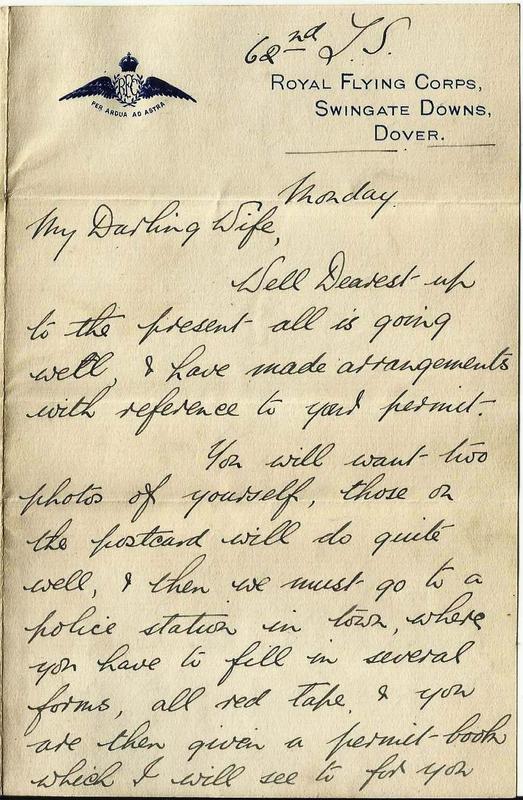 62nd T.S.
RFC
PER ARDUA AD ASTRA
ROYAL FLYING CORPS,
SWINGATE DOWNS,
DOVER.
Monday.
My Darling Wife,
Well Dearest up
to the present all is going
well, & have made arrangements
with reference to your permit.
You will want two
photos of yourself, those on
the postcard will do quite
well, & then we must go to a
police station in town, where
you have to fill in several
forms, all red tape, & you
are then given a permit-book
which I will see to for you